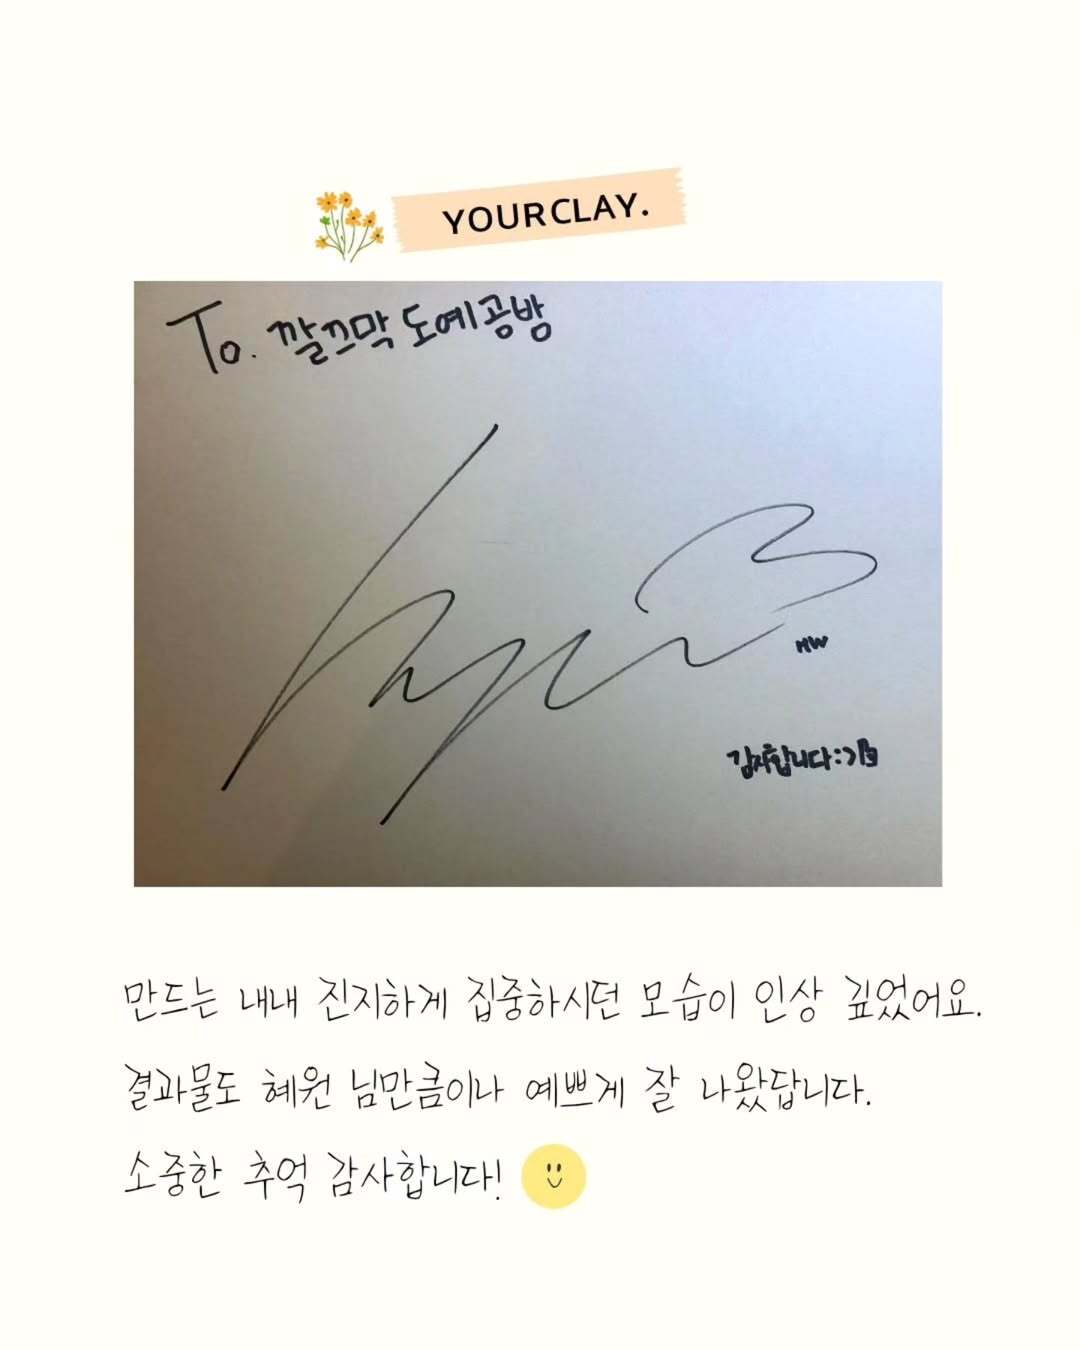 YOURCLAY.
To. 깔끄막 도예공방
HW
감사합니다:)
만드는 내내 진지하게 집중하시던 모습이 인상 깊었어요.
결과물도 혜원 님만큼이나 예쁘게 잘 나왔답니다.
소중한 추억 감사합니다!